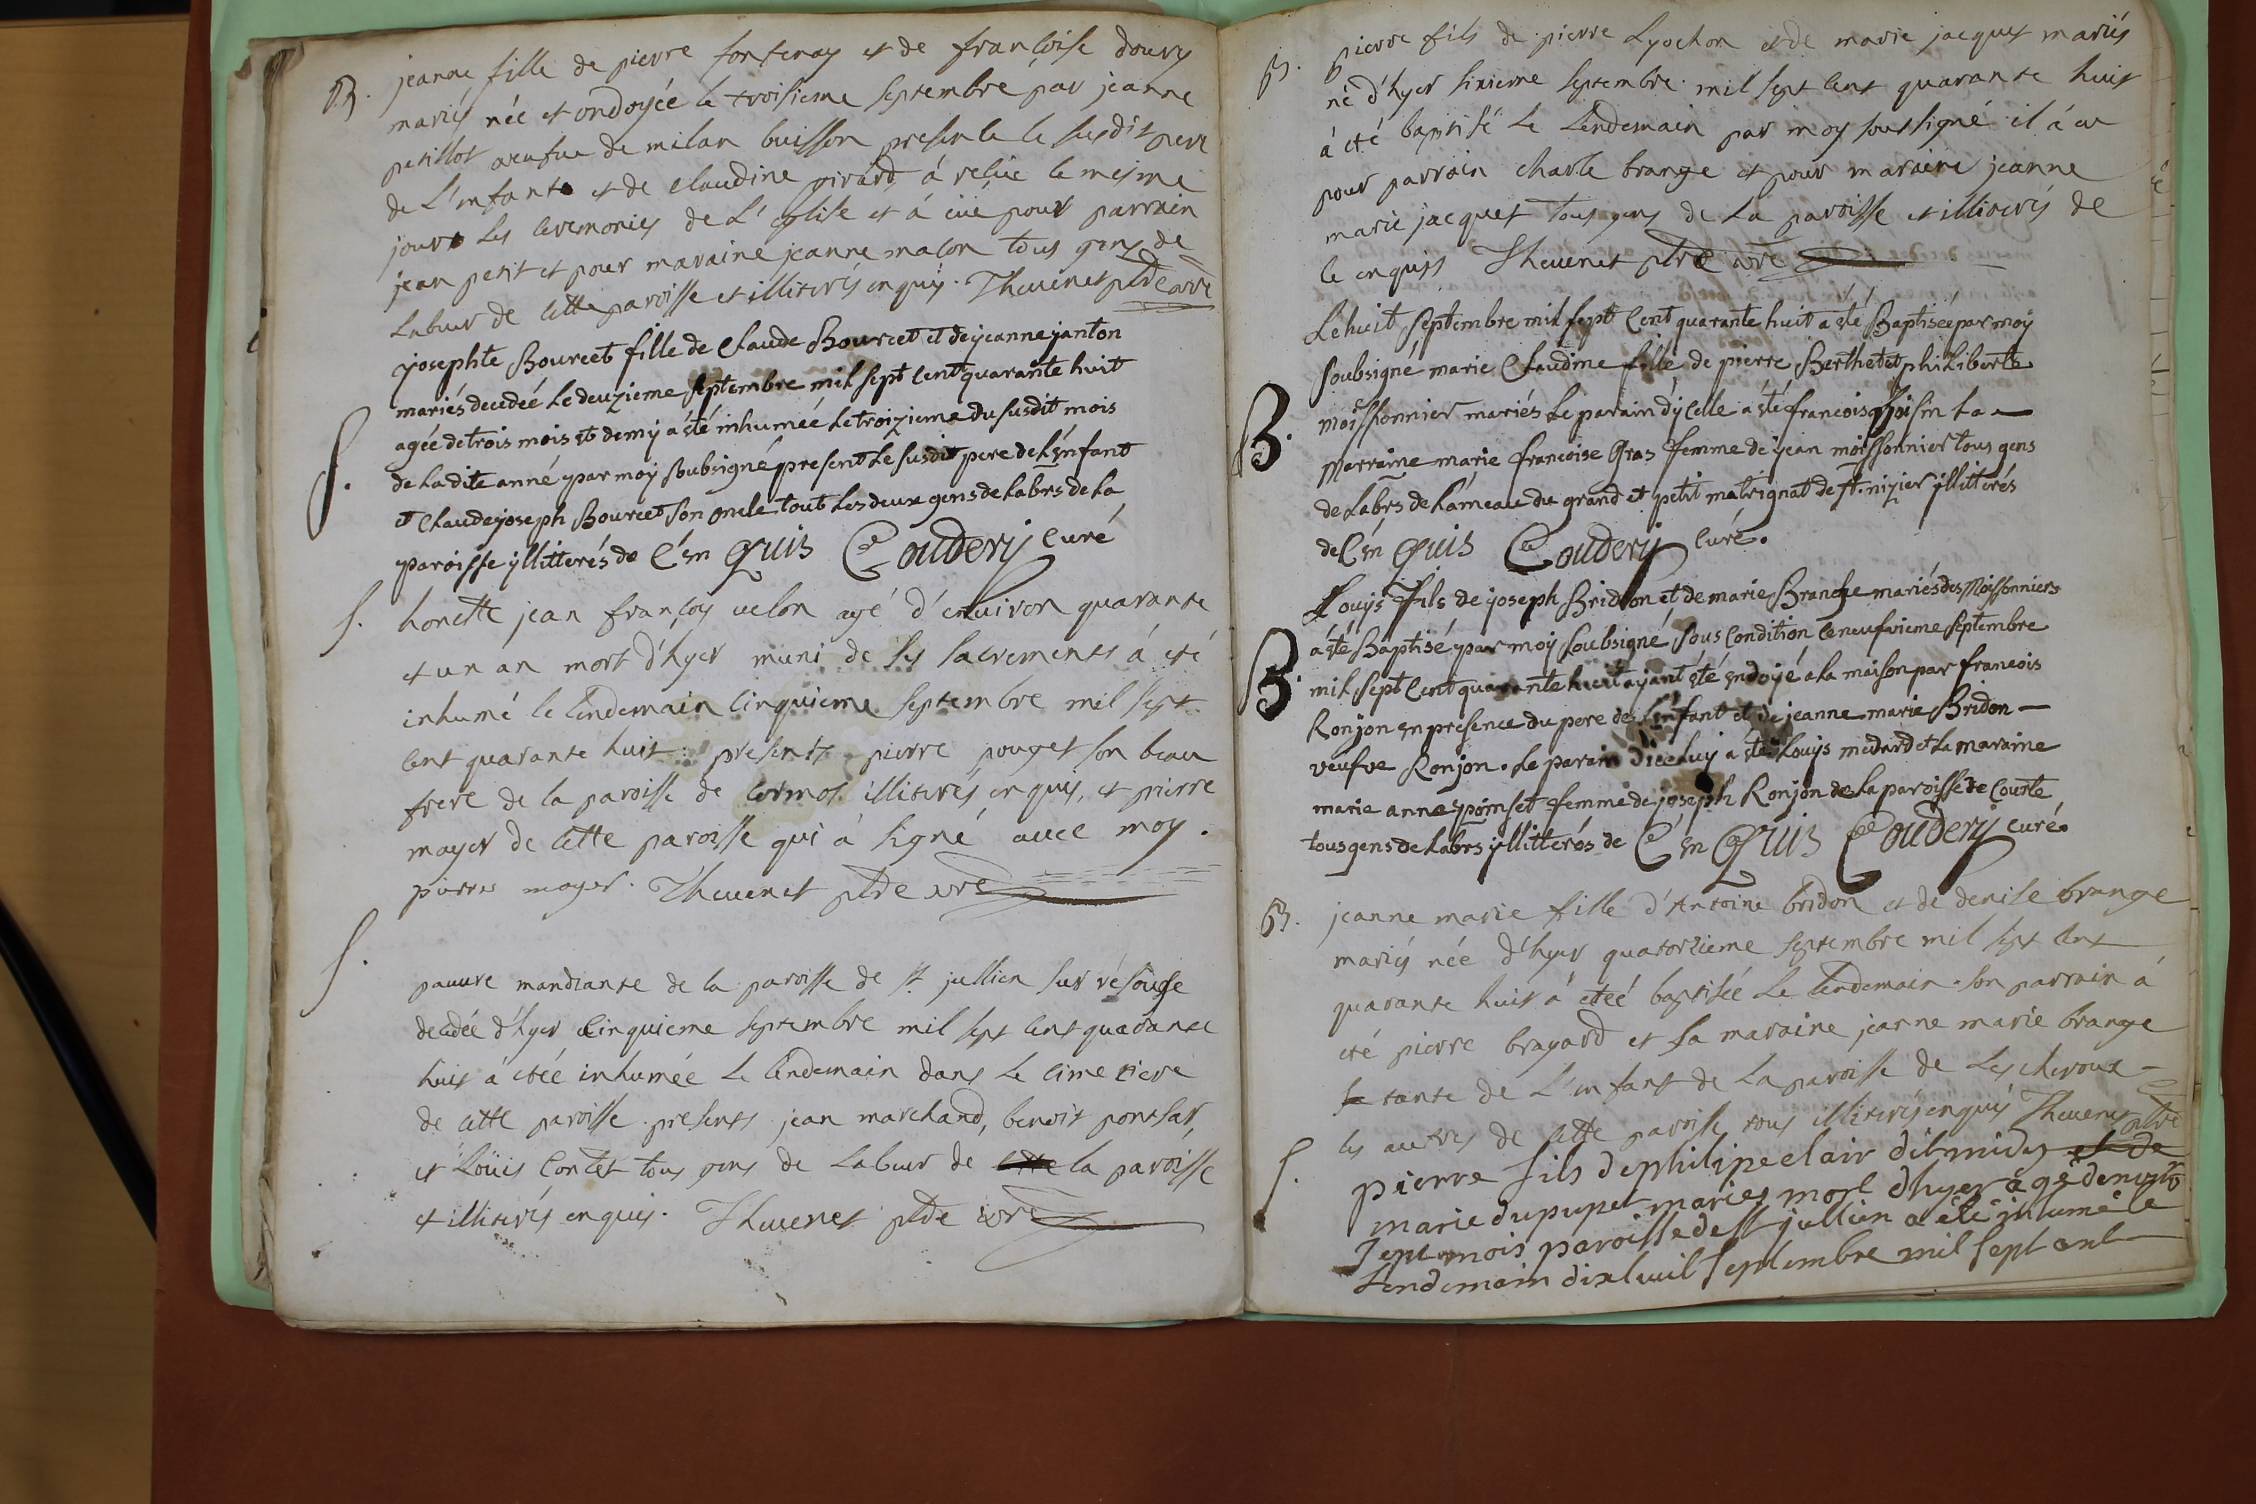 B. jeanne fille de pierre fontenay et de françoise doury
mariés née et ondoyée le troisieme septembre par jeanne
petillot veufue de milan buisson presente le susdit pere
de l'enfant et de claudine girard á reçue le mesme
jour les ceremonies de l'eglise et á eüe pour parrain
jean petit et pour maraine jeanne maçon tous gens de
labeur de cette paroisse et illiterés enquis. Thevenet ptre vre
josephte Bourcet fille de Claude Bourcet et de jeanne janton
mariés decedée le deuzieme septembre mil sept Cent quarante huit
agée de trois mois et demy a ste inhumée le troizieme du susdit mois
S. de la dite anné par moy soubsigné present le susdit pere de l'enfant
et Claude joseph Bourcet son oncle tout les deux gens de labrs de la
paroisse yllitterés de C'en quis Coudery Curé
S. honette jean françoy velon agé d'environ quarante
et un an mort d'hyer muni de ses sacrements á eté
inhumé le lendemain cinquieme septembre mil sept
cent quarante huit. presents pierre pouget son beau
frere de la paroisse de cormos illiterés enquis, et pierre
mayer de cette paroisse qui á signé avec moy.
pierres mayer. Thevenet ptre vre
S.
pauvre mandiante de la paroisse de st jullien sur résouse
decedée d'hyer cinquieme septembre mil sept cent quarante
huit á etée inhumée le lendemain dans le cimetiere
de cette paroisse presents jean marchand, benoit pontsat,
et Loüis Contet tous gens de labeur de cette la paroisse
et illiterés enquis. Thevenet ptre vre
B. pierre fils de pierre Lyochon et de marie jacquet mariés
né d'hyer sixieme septembre mil sept cent quarante huit
á eté baptisé le lendemain par moy soussigné il á eu
pour parrain charle brange et pour maraine jeanne
marie jacquet tous gens de la paroisse et illiterés de
ce enquis Thevenet ptre vre
Le huit septembre mil sept Cent quarante huit a ste Baptisée par moy
soubsigné marie Claudine fille de pierre Berthet et philiberte
B. moissonnier mariés le parain d'y Celle a ste francois Loisin La
marraine marie francoise Gras femme de jean moissonnier tous gens
de Labrs de hameau du grand et petit matrignat de st. nizier yllitterés
de C'en quis Coudery Curé.
Louys Fils de joseph Bridon et de marie Brange mariés des Moissonniers
a ste Baptisé par moy soubsigné sous Condition le neufvieme septembre
B. mil sept Cent quarante huit ayant ste endoyé a la maison par francois
Ronjon en presence du pere de l'enfant et de jeanne marie Bridon
veufve Ronjon. Le parain d'iceluy a ste Louys medard et La maraine
marie anne poinset femme de joseph Ronjon de la paroisse de Courte
tous gens de labrs yllitterés de C'en Quis Coudery curé.
B. jeanne marie fille d'Antoine bridon et de denise brange
mariés née d'hyer quatorzieme septembre mil sept cent
quarante huit á etéé baptisée le lendemain. son parrain á
eté pierre brayard et sa maraine jeanne marie brange
sa tante de l'enfant de la paroisse de Lescheroux
les autres de cette paroisse tous illiterés enquis Thevenet ptre
S. pierre fils de philipe clair dit midy et de
marie dupupet mariés mort d'hyer agé de
sept mois paroisse de st jullien a été inhumé le
lendemain dixhuit septembre mil sept cent